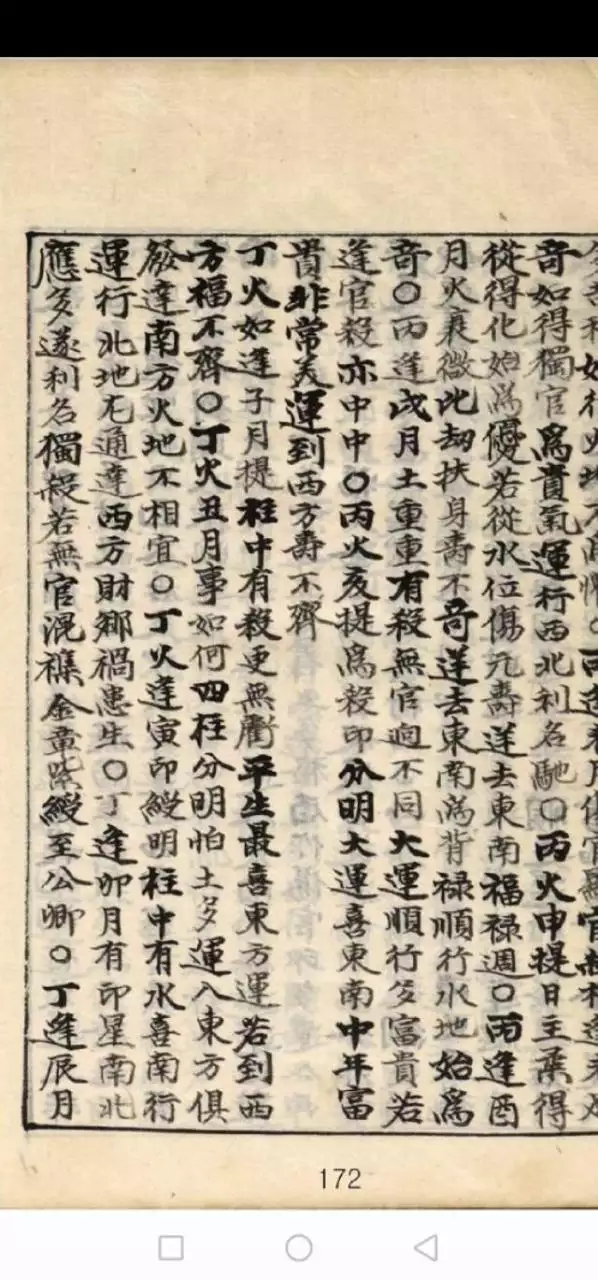 奇如得獨官為貴氣運行西北利名馳○丙火申提日主柔得
從得化始為優若從水位傷元壽逆去東南福祿週○丙逢酉
月火衰微此劫扶身壽不奇逆去東南為背祿順行水地始為
奇○丙逢戌月土重重有殺無官逈不同大運順行多富貴若
逢官殺亦中中○丙火亥提為殺印分明大運喜東南中年富
貴非常美運到西方壽不齊
丁火如逢子月提柱中有殺更無衝平生最喜東方運若到西
方福不齊○丁火丑月事如何四柱分明怕土多運入東方俱
發達南方火地不相宜○丁火逢寅印綬明柱中有水喜南行
運行北地尤通達西方財鄉禍患生○丁逢卯月有印星南北
應多遂利名獨殺若無官混襍金章紫綬至公卿○丁逢辰月
172